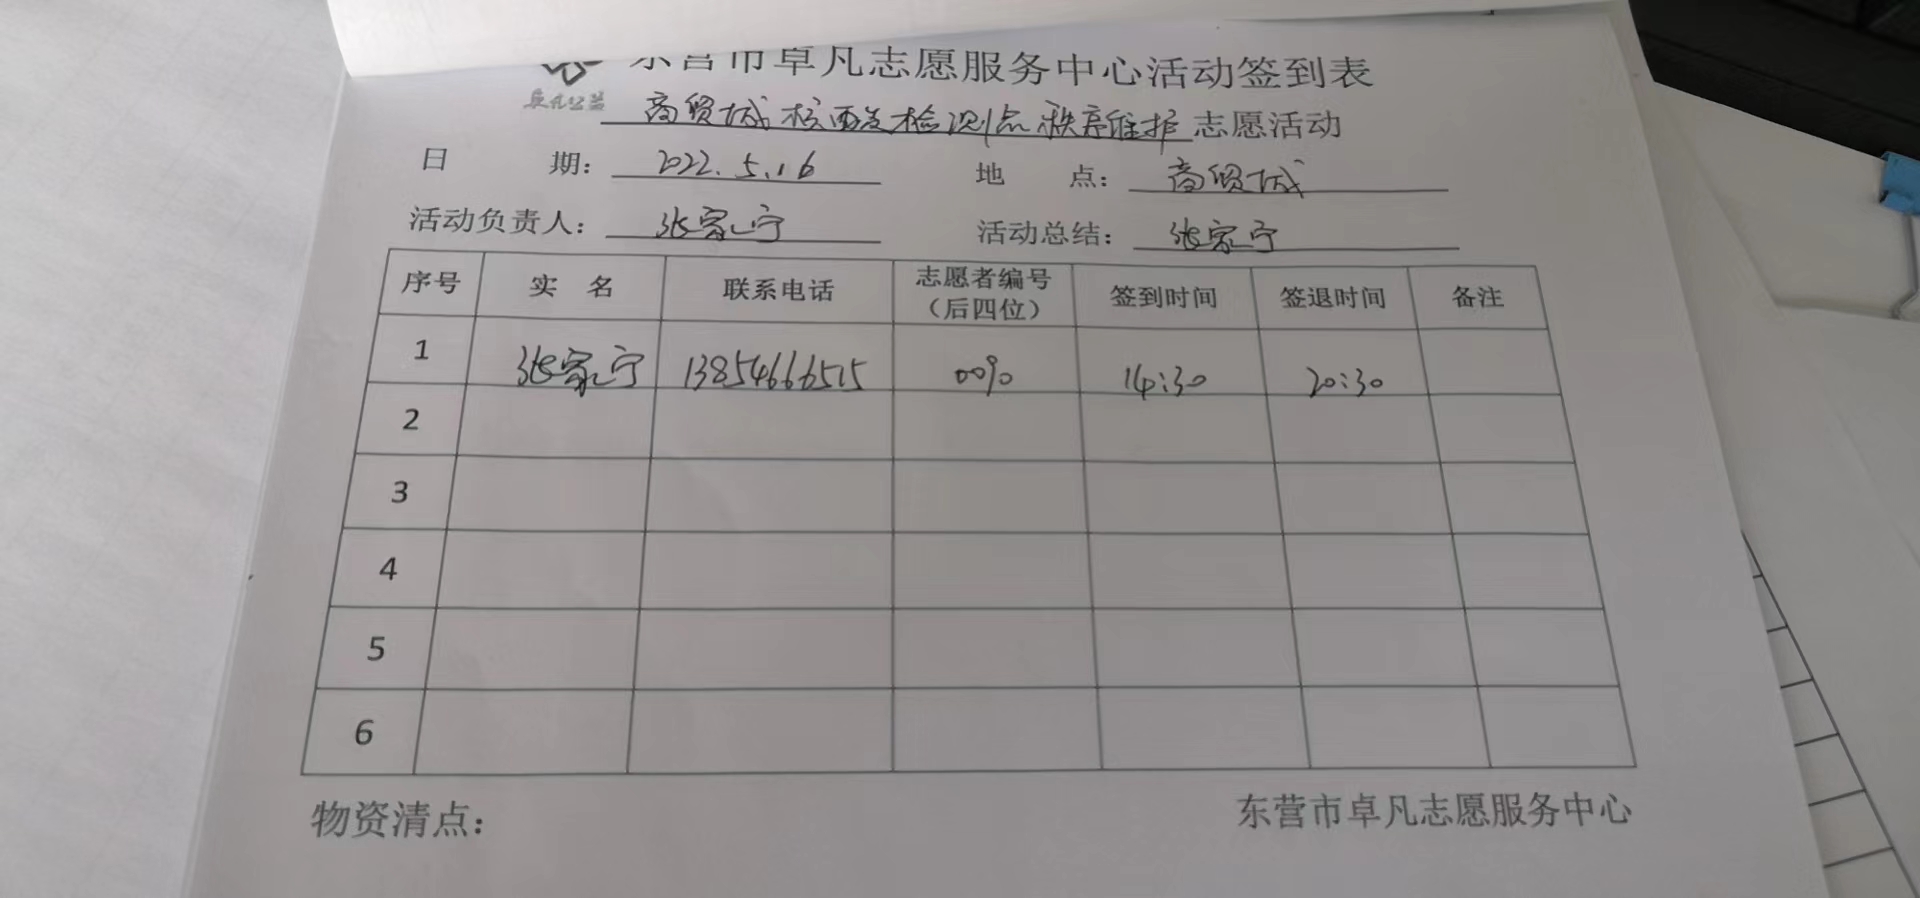 东营市卓凡志愿服务中心活动签到表
卓凡公益
商贸城核酸检测点秩序维护志愿活动
日 期： 2022.5.16 地 点： 商贸城
活动负责人： 张家宁 活动总结： 张家宁
序号 实 名 联系电话 志愿者编号（后四位） 签到时间 签退时间 备注
1 张家宁 13854666515 0090 14:30 20:30
2
3
4
5
6
物资清点： 东营市卓凡志愿服务中心